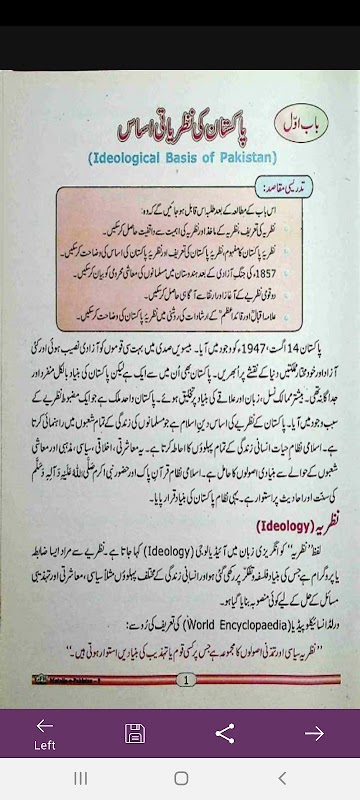 باب اوّل
پاکستان کی نظریاتی اساس
(Ideological Basis of Pakistan)
تدریسی مقاصد:
اس باب کے مطالعہ کے بعد طلبہ اس قابل ہو جائیں گے کہ وہ:
نظریہ کی تعریف، نظریہ کے ماخذ اور نظریہ کی اہمیت سے واقفیت حاصل کر سکیں۔
نظریہ پاکستان کا مفہوم، نظریہ پاکستان کی تعریف اور نظریہ پاکستان کی اساس کی وضاحت کر سکیں۔
1857ء کی جنگ آزادی کے بعد ہندوستان میں مسلمانوں کی معاشی محرومی کو بیان کر سکیں۔
دو قومی نظریے کے آغاز اور ارتقا سے آگاہی حاصل کر سکیں۔
علامہ اقبالؒ اور قائداعظمؒ کے ارشادات کی روشنی میں نظریہ پاکستان کی وضاحت کر سکیں۔
پاکستان 14 اگست، 1947ء کو وجود میں آیا۔ بیسویں صدی میں بہت سی قوموں کو آزادی نصیب ہوئی اور کئی
آزاد اور خود مختار مملکتیں دنیا کے نقشے پر اُبھریں۔ پاکستان بھی اُن میں سے ایک ہے لیکن پاکستان کی بنیاد بالکل منفرد اور
جداگانہ تھی۔ بیشتر ممالک نسل، زبان اور علاقے کی بنیاد پر تخلیق ہوئے۔ پاکستان واحد ملک ہے جو ایک مضبوط نظریے کے
سبب وجود میں آیا۔ پاکستان کے نظریے کی اساس دینِ اسلام ہے جو مسلمانوں کی زندگی کے تمام شعبوں میں راہنمائی کرتا
ہے۔ اسلامی نظامِ حیات انسانی زندگی کے تمام پہلوؤں کا احاطہ کرتا ہے۔ یہ معاشرتی، اخلاقی، سیاسی، مذہبی اور معاشی
شعبوں کے حوالے سے بنیادی اصولوں کا حامل ہے۔ اسلامی نظام قرآن پاک اور حضور نبی اکرم صَلَّی اللہُ عَلَیْہِ وَ آلِہٖ وَسَلَّم
کی سنت اور احادیث پر استوار ہے۔ یہی نظام پاکستان کی بنیاد قرار پایا۔
نظریہ (Ideology)
لفظ ”نظریہ“ کو انگریزی زبان میں آئیڈیالوجی (Ideology) کہا جاتا ہے۔ نظریے سے مراد ایسا ضابطہ
یا پروگرام ہے جس کی بنیاد فلسفہ و تفکر پر رکھی گئی ہو اور انسانی زندگی کے مختلف پہلوؤں مثلاً سیاسی، معاشرتی اور تہذیبی
مسائل کے حل کے لیے کوئی منصوبہ بنایا گیا ہو۔
ورلڈ انسائیکلوپیڈیا (World Encyclopaedia) کی تعریف کی رُو سے:
”نظریہ سیاسی اور تمدنی اصولوں کا مجموعہ ہے جس پر کسی قوم یا تہذیب کی بنیادیں استوار ہوتی ہیں۔“
1
Left